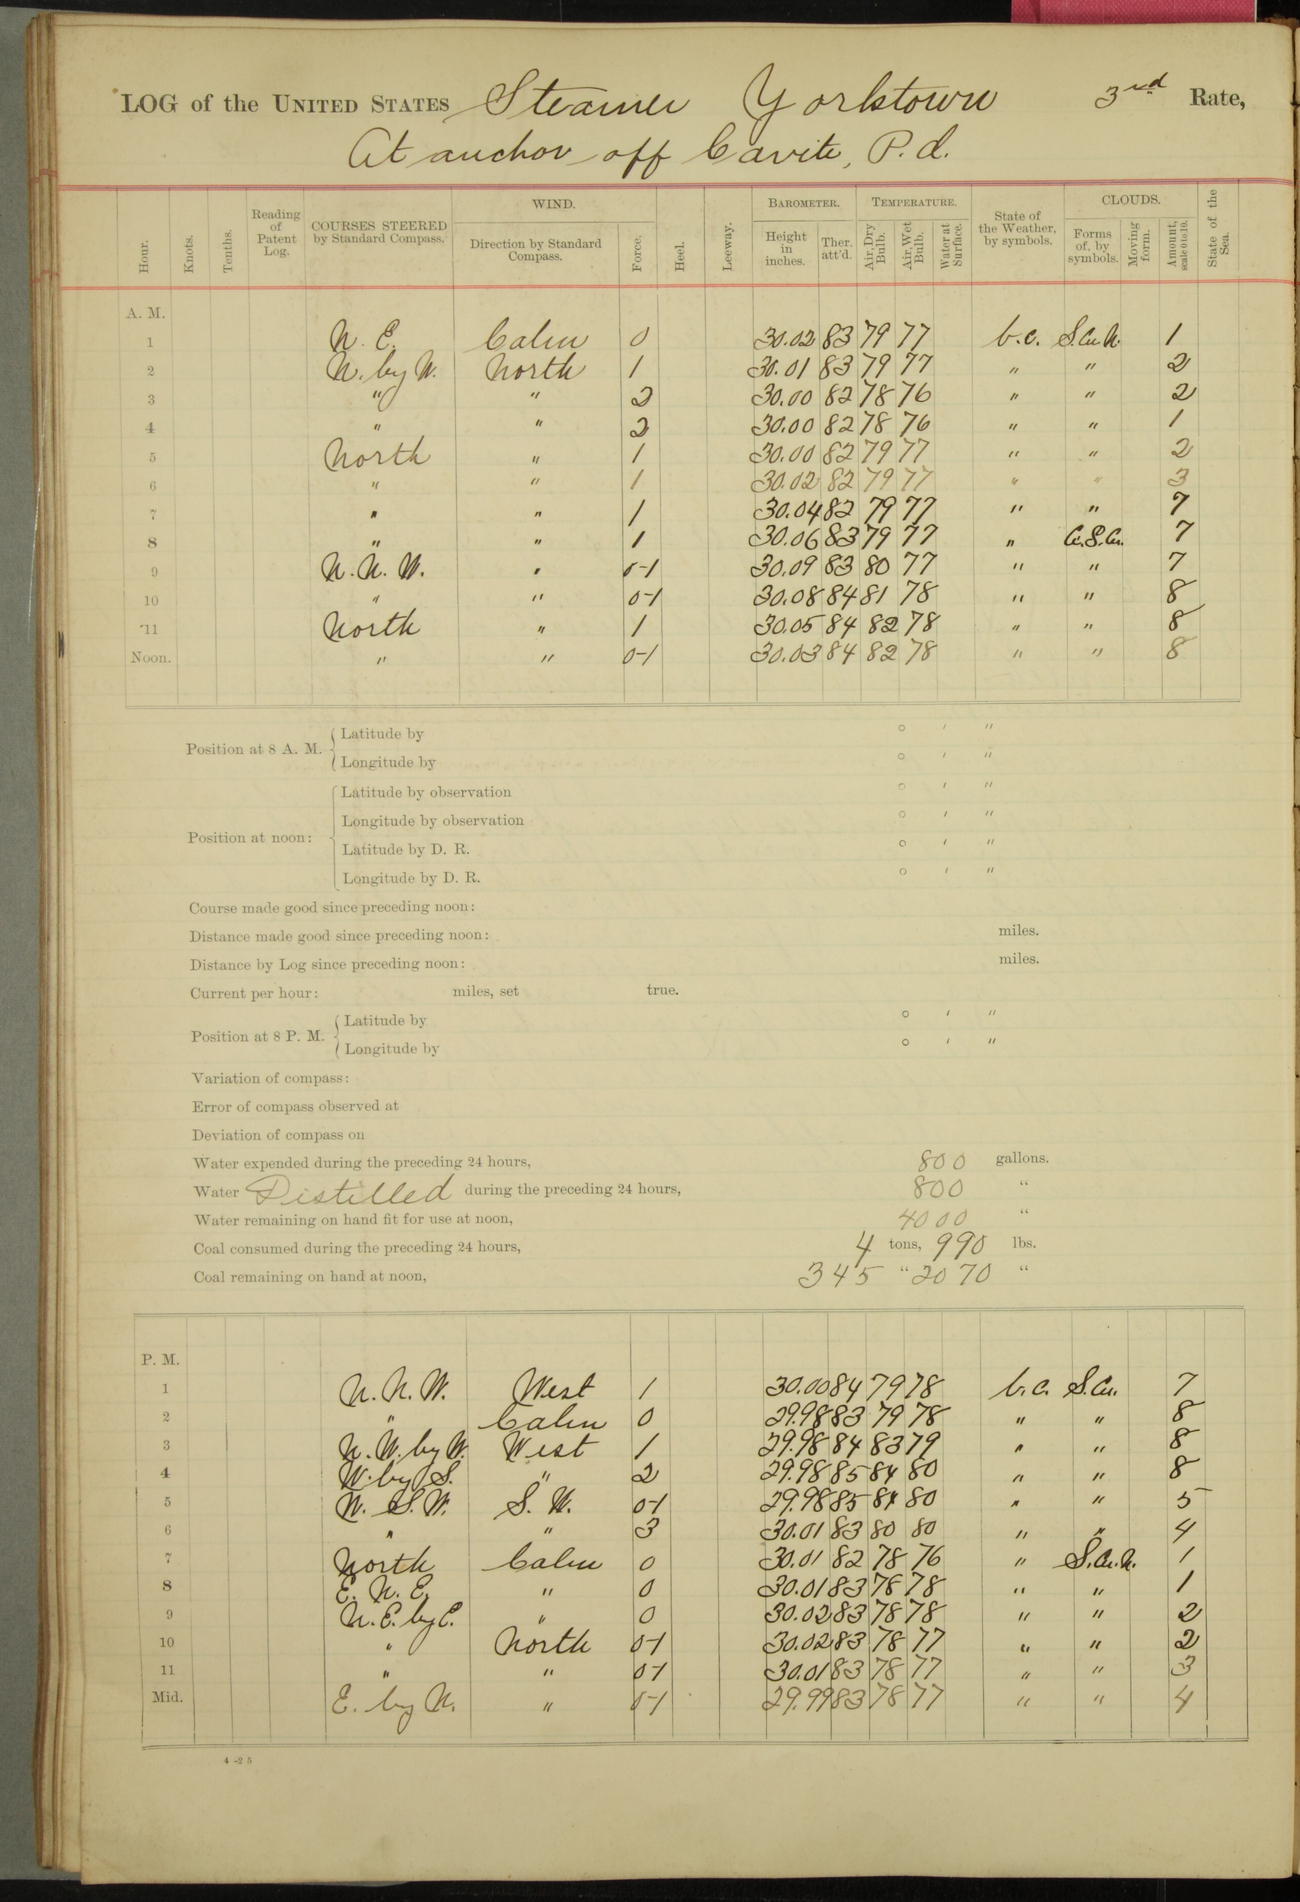 LOG of the UNITED STATES Steamer Yorktown 3rd Rate,
At anchor off Cavite, P.I.
Hour. Knots. Tenths. Reading of Patent Log. COURSES STEERED by Standard Compass. WIND. Direction by Standard Compass. Force. Heel. Leeway. BAROMETER. Height in inches. Ther. att'd. TEMPERATURE. Air, Dry Bulb. Air, Wet Bulb. Water at Surface. State of the Weather, by symbols. CLOUDS. Forms of, by symbols. Moving form. Amount, scale 0 to 10. State of the Sea.
A. M.
1 N. E. Calm 0 30.02 83 79 77 b.c. S.Cu.N. 1
2 N. by W. North 1 30.01 83 79 77 " " 2
3 " " 2 30.00 82 78 76 " " 2
4 " " 2 30.00 82 78 76 " " 1
5 North " 1 30.00 82 79 77 " " 2
6 " " 1 30.02 82 79 77 " " 3
7 " " 1 30.04 82 79 77 " " 7
8 " " 1 30.06 83 79 77 " Cu.S.Cu. 7
9 N. N. W. " 0-1 30.09 83 80 77 " " 7
10 " " 0-1 30.08 84 81 78 " " 8
11 North " 1 30.05 84 82 78 " " 8
Noon. " " 0-1 30.03 84 82 78 " " 8
Position at 8 A. M. { Latitude by ° ' "
Longitude by ° ' "
Latitude by observation ° ' "
Longitude by observation ° ' "
Position at noon:
Latitude by D. R. ° ' "
Longitude by D. R. ° ' "
Course made good since preceding noon:
Distance made good since preceding noon: miles.
Distance by Log since preceding noon: miles.
Current per hour: miles, set true.
Position at 8 P. M. { Latitude by ° ' "
Longitude by ° ' "
Variation of compass:
Error of compass observed at
Deviation of compass on
Water expended during the preceding 24 hours, 800 gallons.
Water Distilled during the preceding 24 hours, 800 "
Water remaining on hand fit for use at noon, 4000 "
Coal consumed during the preceding 24 hours, 4 tons, 990 lbs.
Coal remaining on hand at noon, 345 " 2070 "
P. M.
1 N. N. W. West 1 30.00 84 79 78 b.c. S.Cu. 7
2 " Calm 0 29.98 83 79 78 " " 8
3 N. W. by W. West 1 29.98 84 83 79 " " 8
4 W. by S. " 2 29.98 85 84 80 " " 8
5 W. S. W. S. W. 0-1 29.98 85 84 80 " " 5
6 " " 3 30.01 83 80 80 " " 4
7 North Calm 0 30.01 82 78 76 " S.Cu.N. 1
8 E. N. E. " 0 30.01 83 78 78 " " 1
9 N. E. by E. " 0 30.02 83 78 78 " " 2
10 " North 0-1 30.02 83 78 77 " " 2
11 " " 0-1 30.01 83 78 77 " " 3
Mid. E. by N. " 0-1 29.99 83 78 77 " " 4
4-25